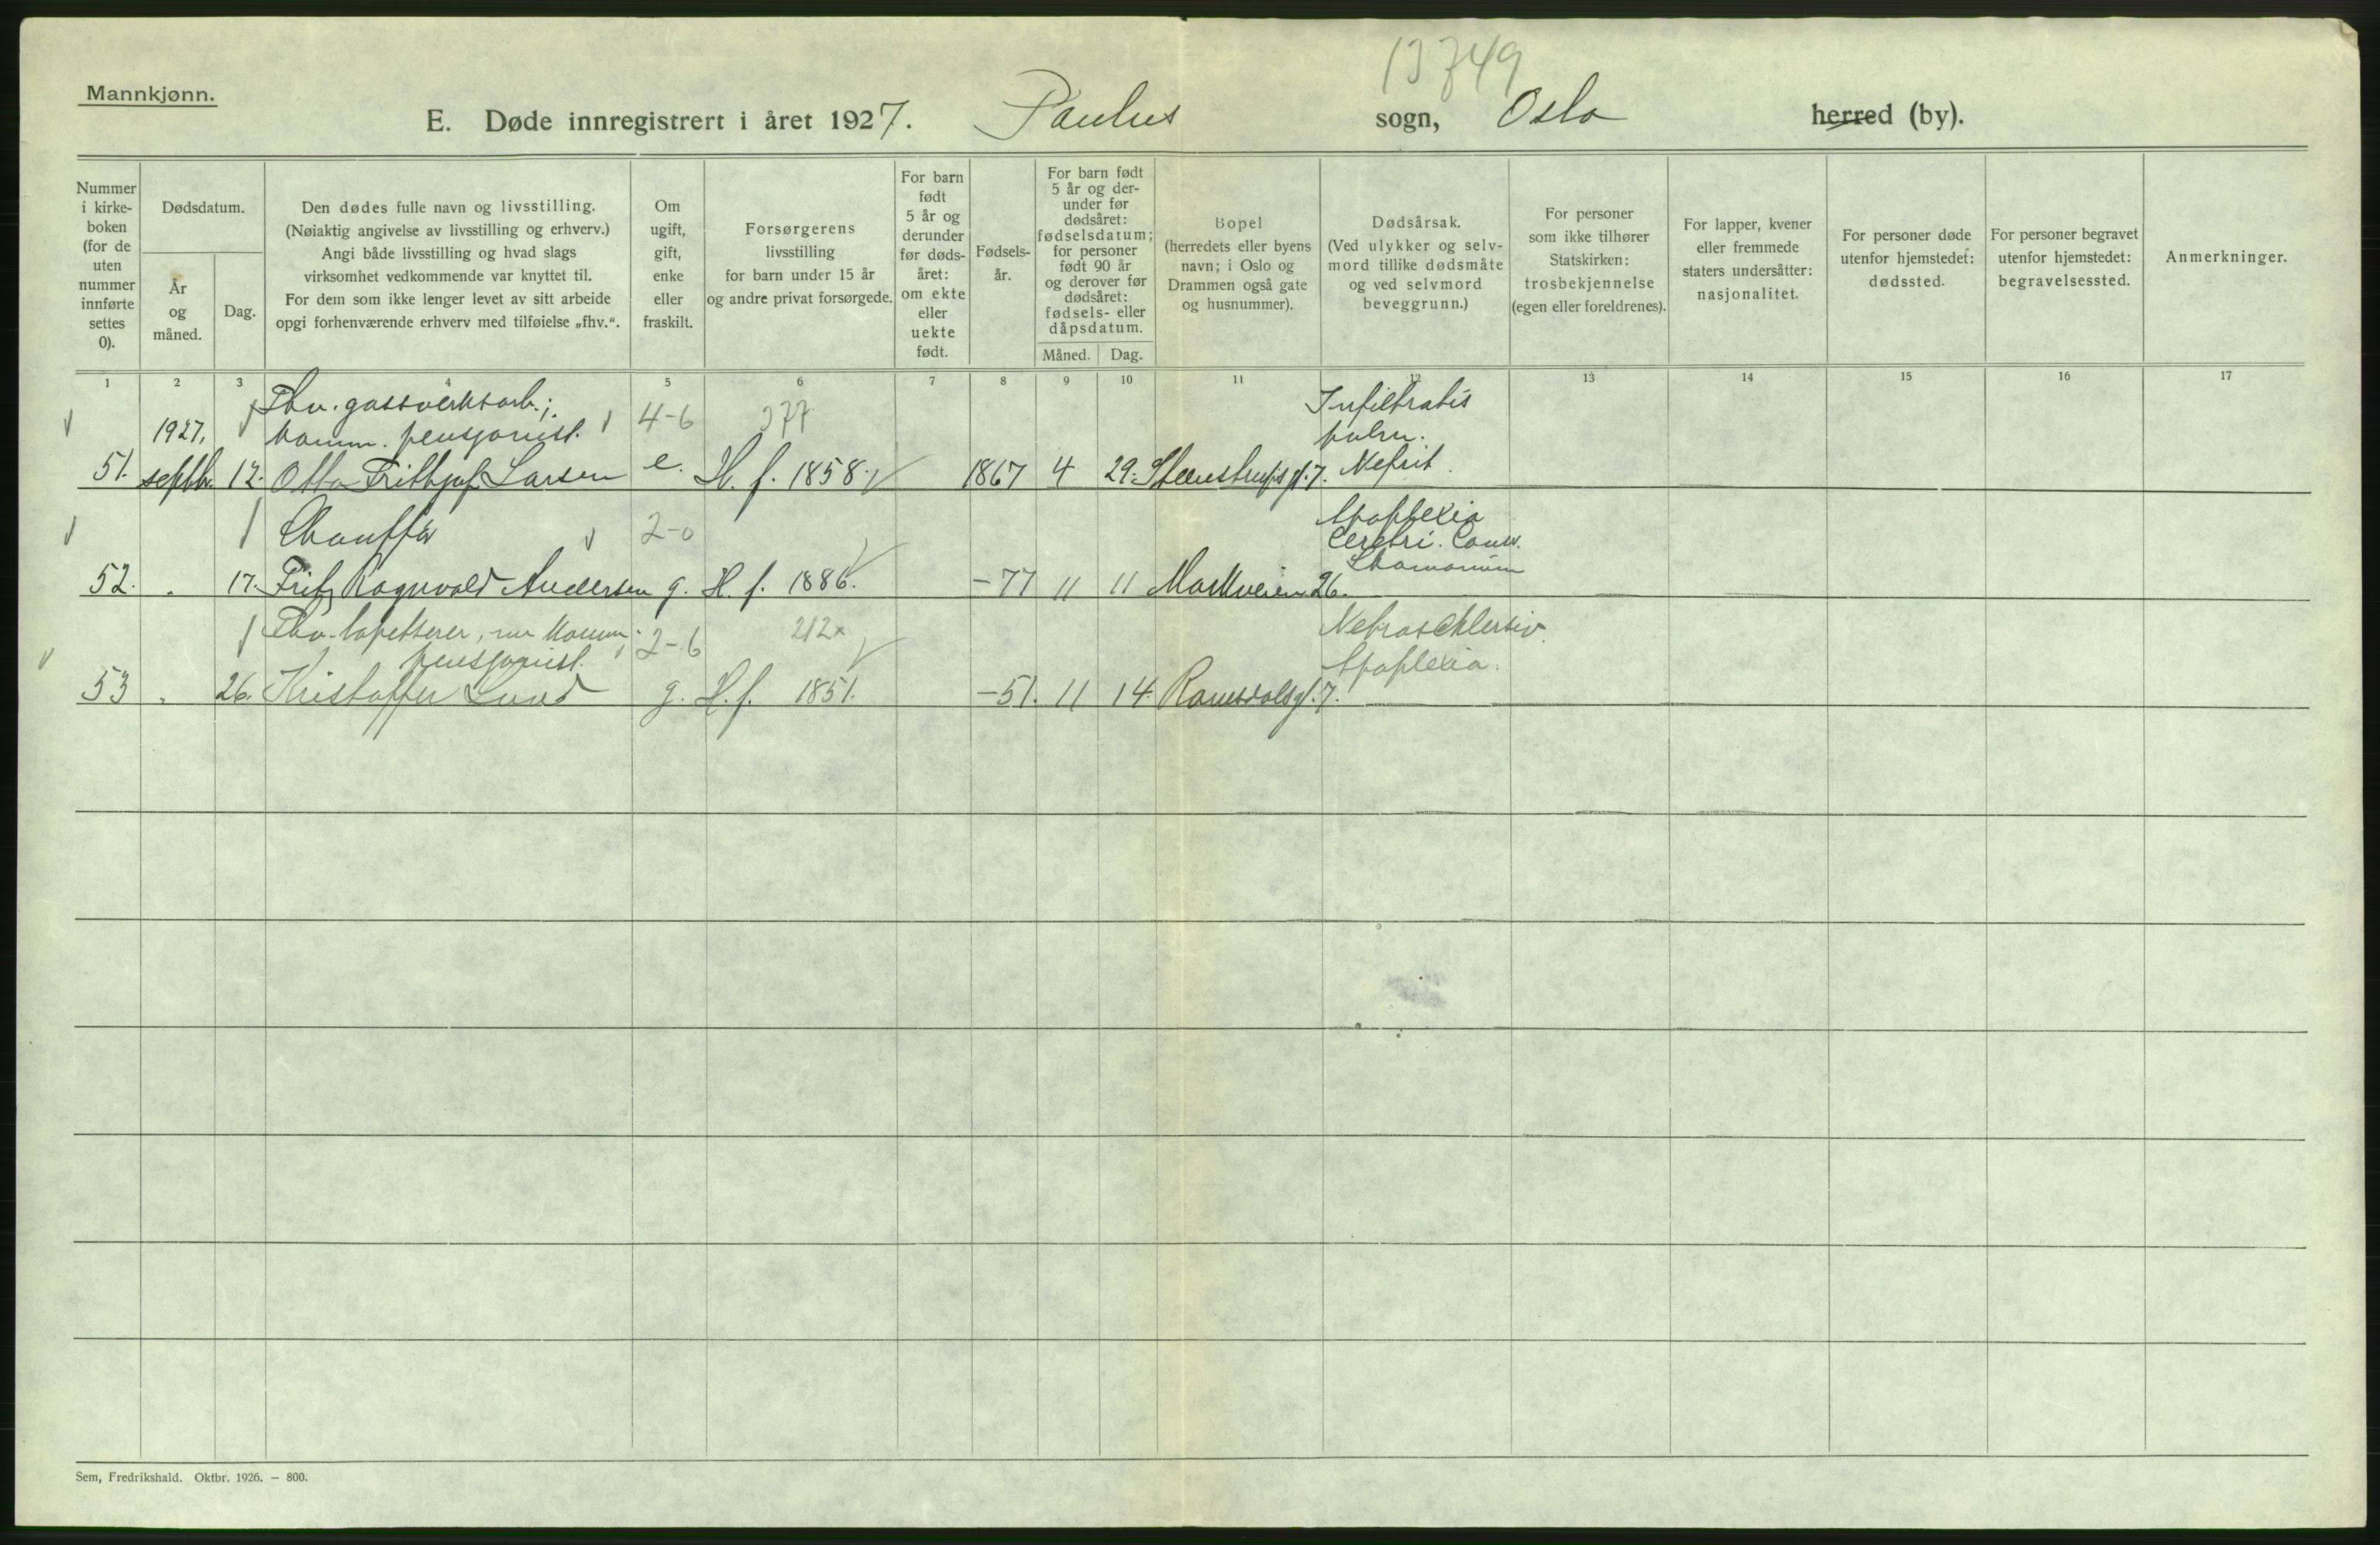 13749
Mannkjønn.
E. Døde innregistrert i året 1927. Paulus sogn, Oslo herred (by).
Nummer i kirke- boken (for de uten nummer innførte settes 0).
Dødsdatum.
År og måned.
Dag.
Den dødes fulle navn og livsstilling.
(Nøiaktig angivelse av livsstilling og erhverv.)
Angi både livsstilling og hvad slags
virksomhet vedkommende var knyttet til.
For dem som ikke lenger levet av sitt arbeide
opgi forhenværende erhverv med tilføielse „fhv.“.
Om ugift, gift, enke eller fraskilt.
Forsørgerens
livsstilling
for barn under 15 år
og andre privat forsørgede.
For barn født 5 år og derunder før døds- året: om ekte eller uekte født.
Fødsels- år.
For barn født 5 år og der- under før dødsåret: fødselsdatum; for personer født 90 år og derover før dødsåret: fødsels- eller dåpsdatum.
Måned. Dag.
Bopel
(herredets eller byens
navn; i Oslo og
Drammen også gate
og husnummer).
Dødsårsak.
(Ved ulykker og selv-
mord tillike dødsmåte
og ved selvmord
beveggrunn.)
For personer
som ikke tilhører
Statskirken:
trosbekjennelse
(egen eller foreldrenes).
For lapper, kvener
eller fremmede
staters undersåtter:
nasjonalitet.
For personer døde
utenfor hjemstedet:
dødssted.
For personer begravet
utenfor hjemstedet:
begravelsessted.
Anmerkninger.
1 2 3 4 5 6 7 8 9 10 11 12 13 14 15 16 17
Fhv. gassverksarb.; 4-6 377 Infiltratis
1927. komm. pensjonist. pulm.
51. septb. 12. Otto Frithjof Larsen e. H. f. 1858. 1867 4 29. Steenstrupsgt. 7. Nefrit.
Chauffør 2-0 Apoplexia
Cerebri.
52. 17. Fritz Ragnvald Andersen g. H. f. 1886. -77 11 11 Markveien 26.
Fhv. tapetserer, nu komm. 2-6 212x
pensjonist. Apoplexia.
53 26. Kristoffer Lund g. H. f. 1851. -51. 11 14. Romsdalsgt. 7.
Sem, Fredrikshald. Oktbr. 1926. — 800.